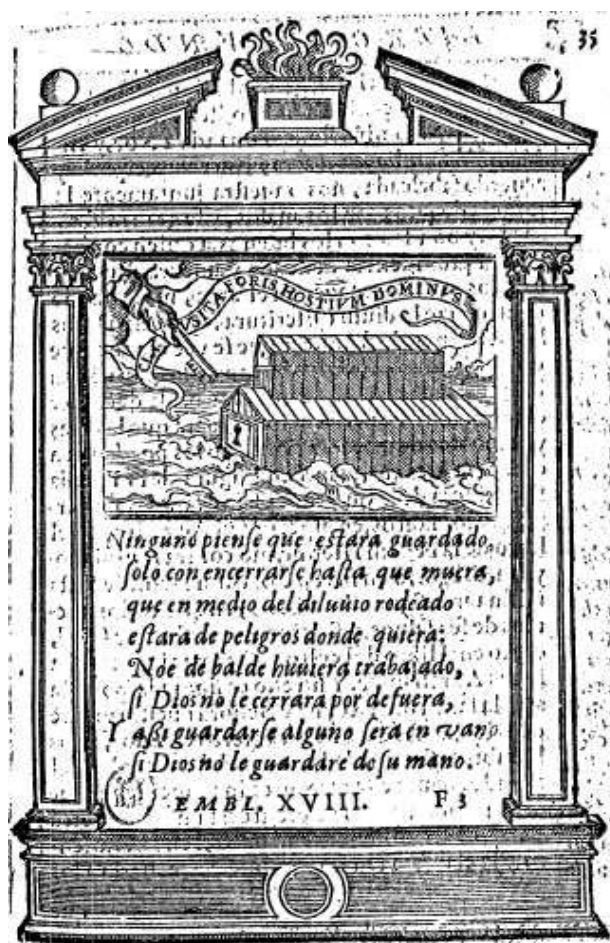 35
CLAVSIT A FORIS HOSTIVM DOMINVS
Ninguno piense que estara guardado,
solo con encerrarse hasta que muera,
que en medio del diluuio rodeado
estara de peligros donde quiera:
Noe de balde huuiera trabajado,
si Dios no le cerrara por defuera,
Y assi guardarse alguno sera en vano
si Dios no le guardare de su mano.
EMBL. XVIII. F 3